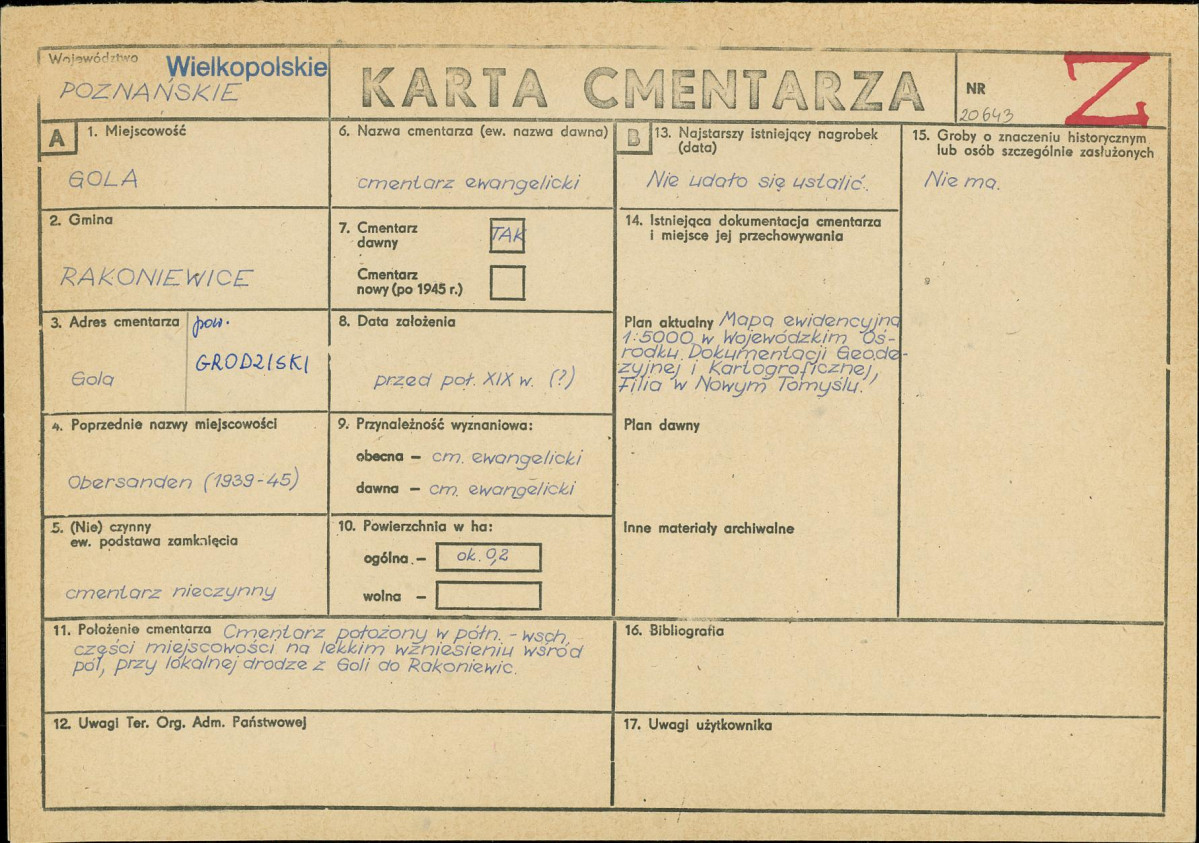 Województwo
Wielkopolskie
POZNAŃSKIE
KARTA CMENTARZA
NR
20643
Z
A
1. Miejscowość
GOLA
2. Gmina
RAKONIEWICE
3. Adres cmentarza
pow.
GRODZISKI
Gola
4. Poprzednie nazwy miejscowości
Obersanden (1939-45)
5. (Nie) czynny
ew. podstawa zamknięcia
cmentarz nieczynny
6. Nazwa cmentarza (ew. nazwa dawna)
cmentarz ewangelicki
7. Cmentarz
dawny
TAK
Cmentarz
nowy (po 1945 r.)
8. Data założenia
przed poł. XIX w. (?)
9. Przynależność wyznaniowa:
obecna – cm. ewangelicki
dawna – cm. ewangelicki
10. Powierzchnia w ha:
ogólna – ok. 0,2
wolna –
11. Położenie cmentarza Cmentarz położony w półn. - wsch.
części miejscowości na lekkim wzniesieniu wśród
pól, przy lokalnej drodze z Goli do Rakoniewic.
12. Uwagi Ter. Org. Adm. Państwowej
B
13. Najstarszy istniejący nagrobek
(data)
Nie udało się ustalić.
14. Istniejąca dokumentacja cmentarza
i miejsce jej przechowywania
Plan aktualny Mapa ewidencyjna
1:5000 w Wojewódzkim Oś-
rodku Dokumentacji Geode-
zyjnej i Kartograficznej,
Filia w Nowym Tomyślu.
Plan dawny
Inne materiały archiwalne
15. Groby o znaczeniu historycznym
lub osób szczególnie zasłużonych
Nie ma.
16. Bibliografia
17. Uwagi użytkownika